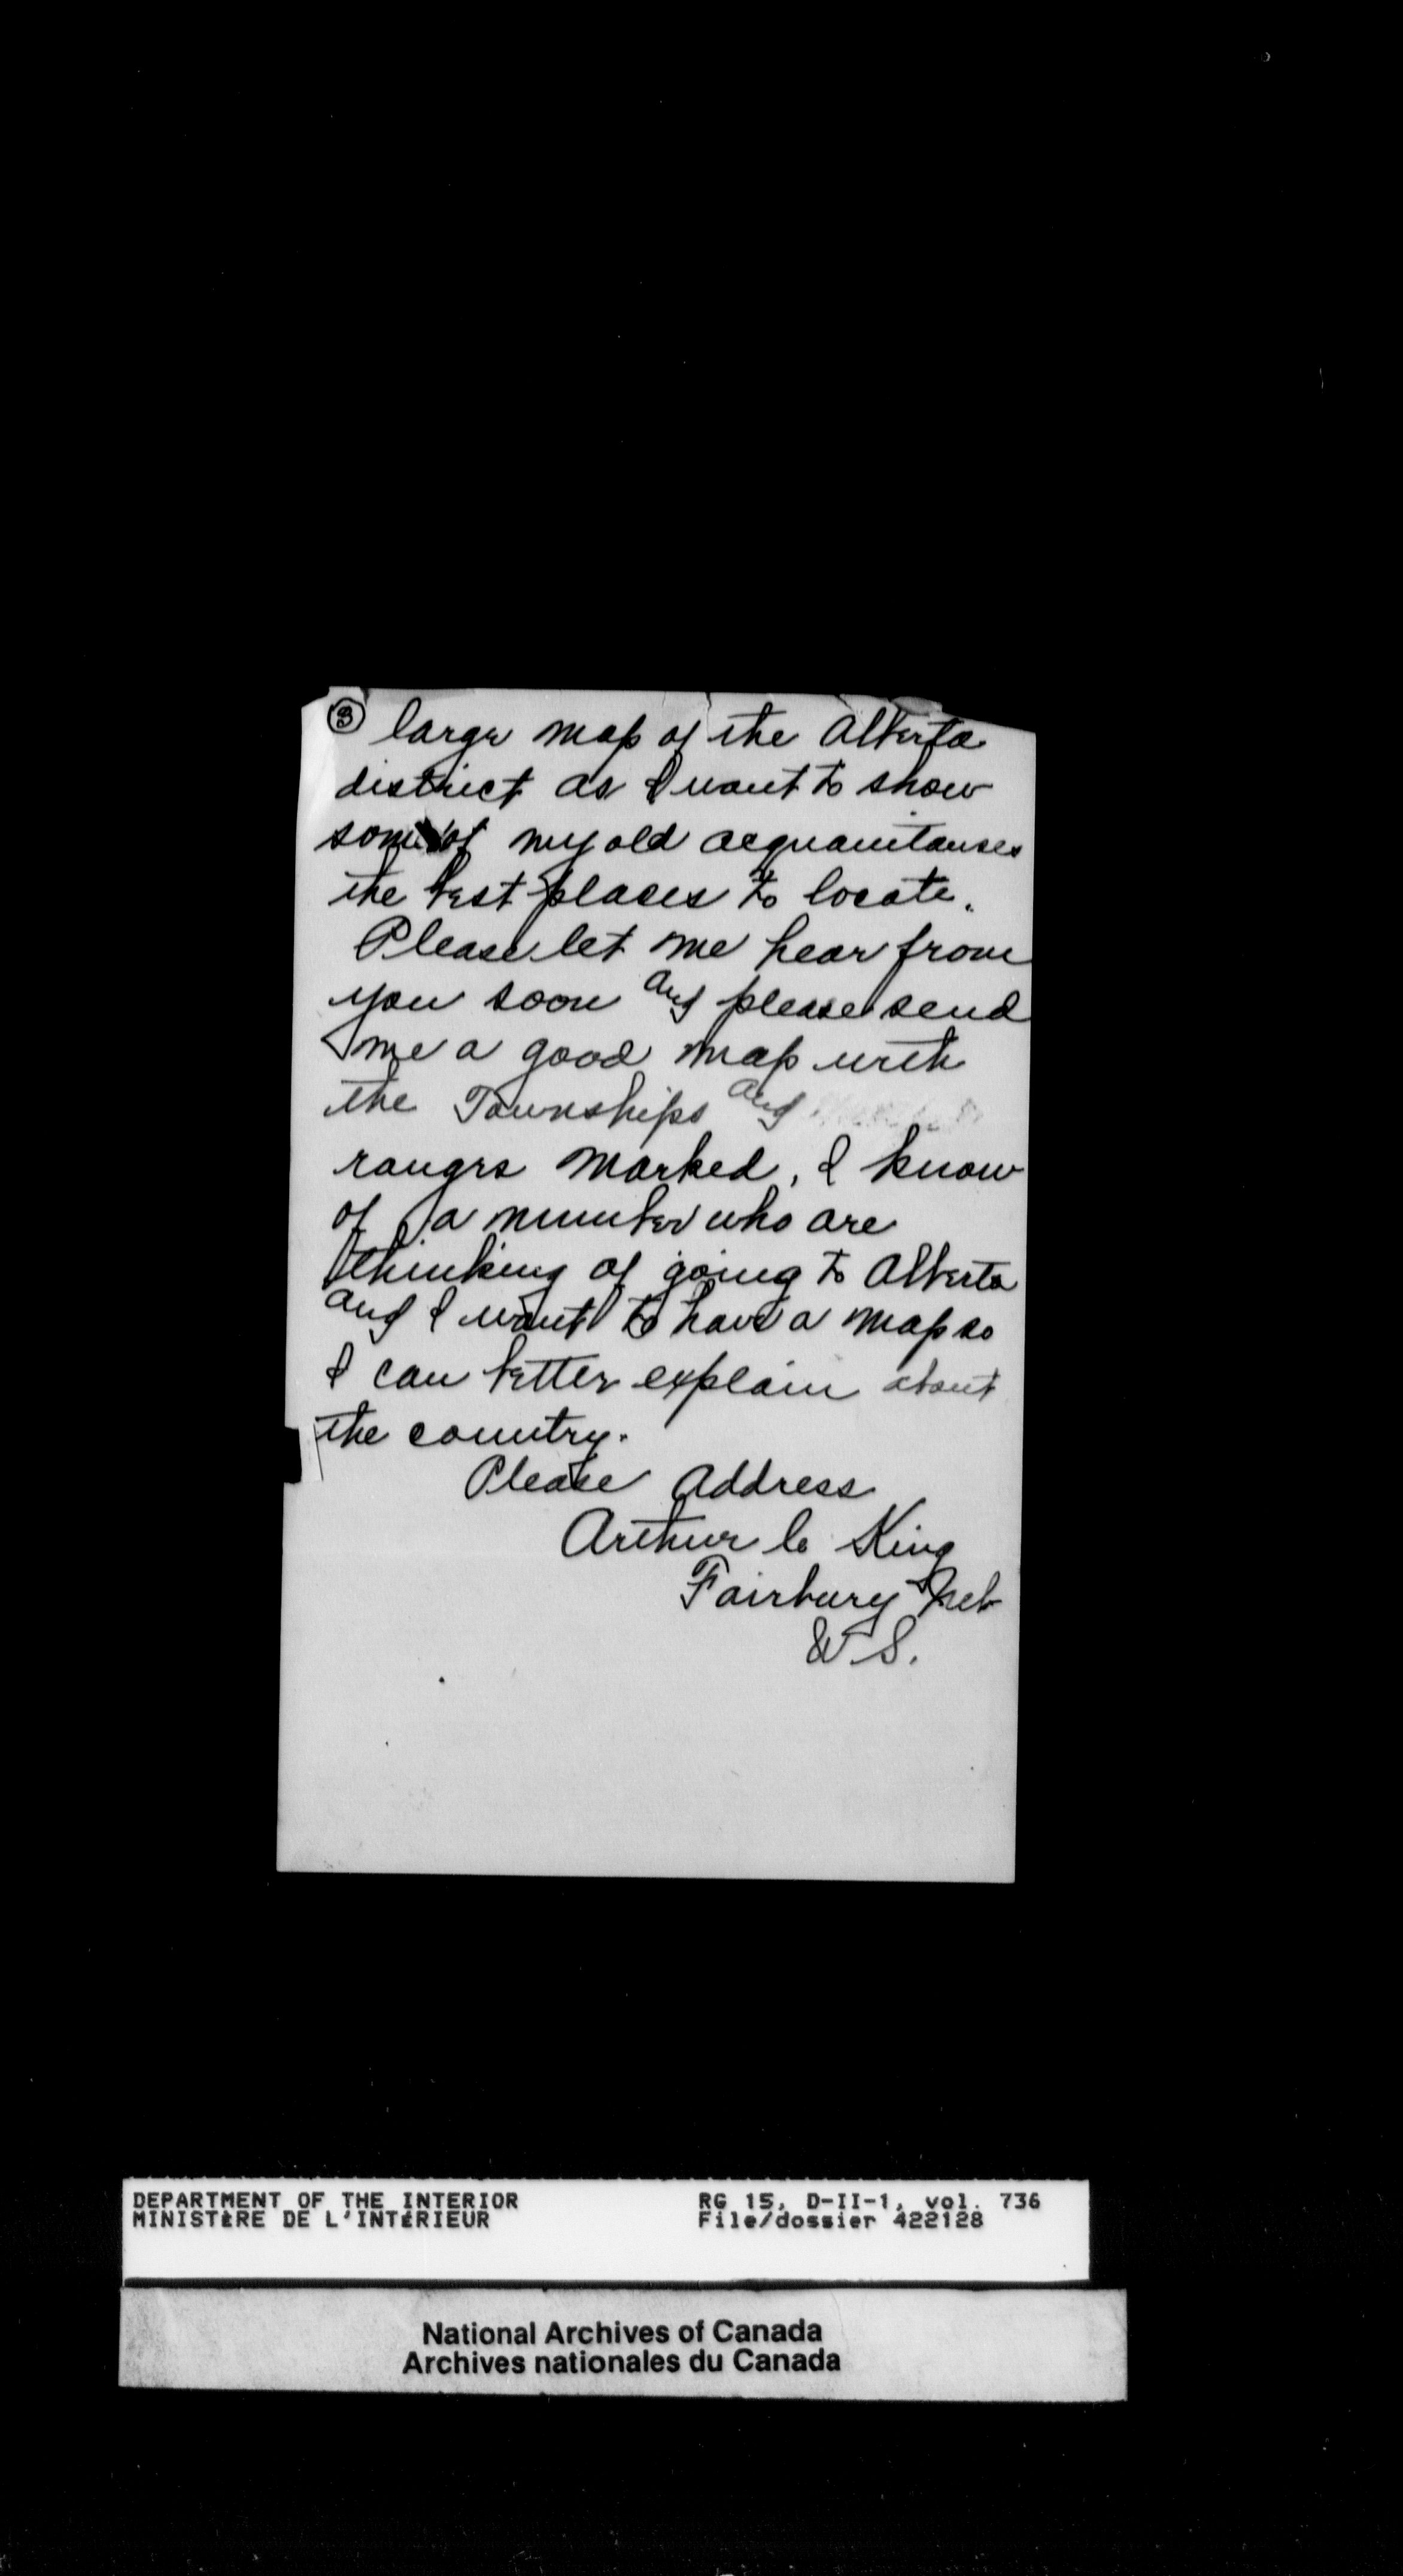 ③ large map of the Alberta
district as I want to show
some of my old acquaintanses
the best places to locate.
Please let me hear from
you soon and please send
me a good map with
the Townships and
ranges marked, I know
of a number who are
thinking of going to Alberta
and I want to have a map so
I can better explain about
the country.
Please Address
Arthur C King
Fairbury Neb
U S.
DEPARTMENT OF THE INTERIOR
MINISTÈRE DE L'INTÉRIEUR
RG 15, D-II-1, vol. 736
File/dossier 422128
National Archives of Canada
Archives nationales du Canada